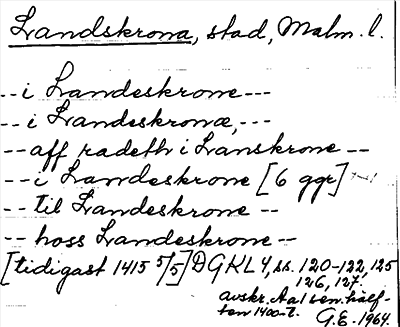 Landskrona, stad, Malm. l.
-- i Landeskrone ---
-- i Landeskronæ, ---
-- aff radeth i Lanskrone --
-- i Landeskrone [6 ggr] ---
-- til Landeskrone --
-- hoss Landeskrone --
[tidigast 1415 5/5] DGKL 4, ss. 120-122, 125
126, 127.
avskr. A a 1 sen. hälf-
ten 1400-t. G.E. 1964.